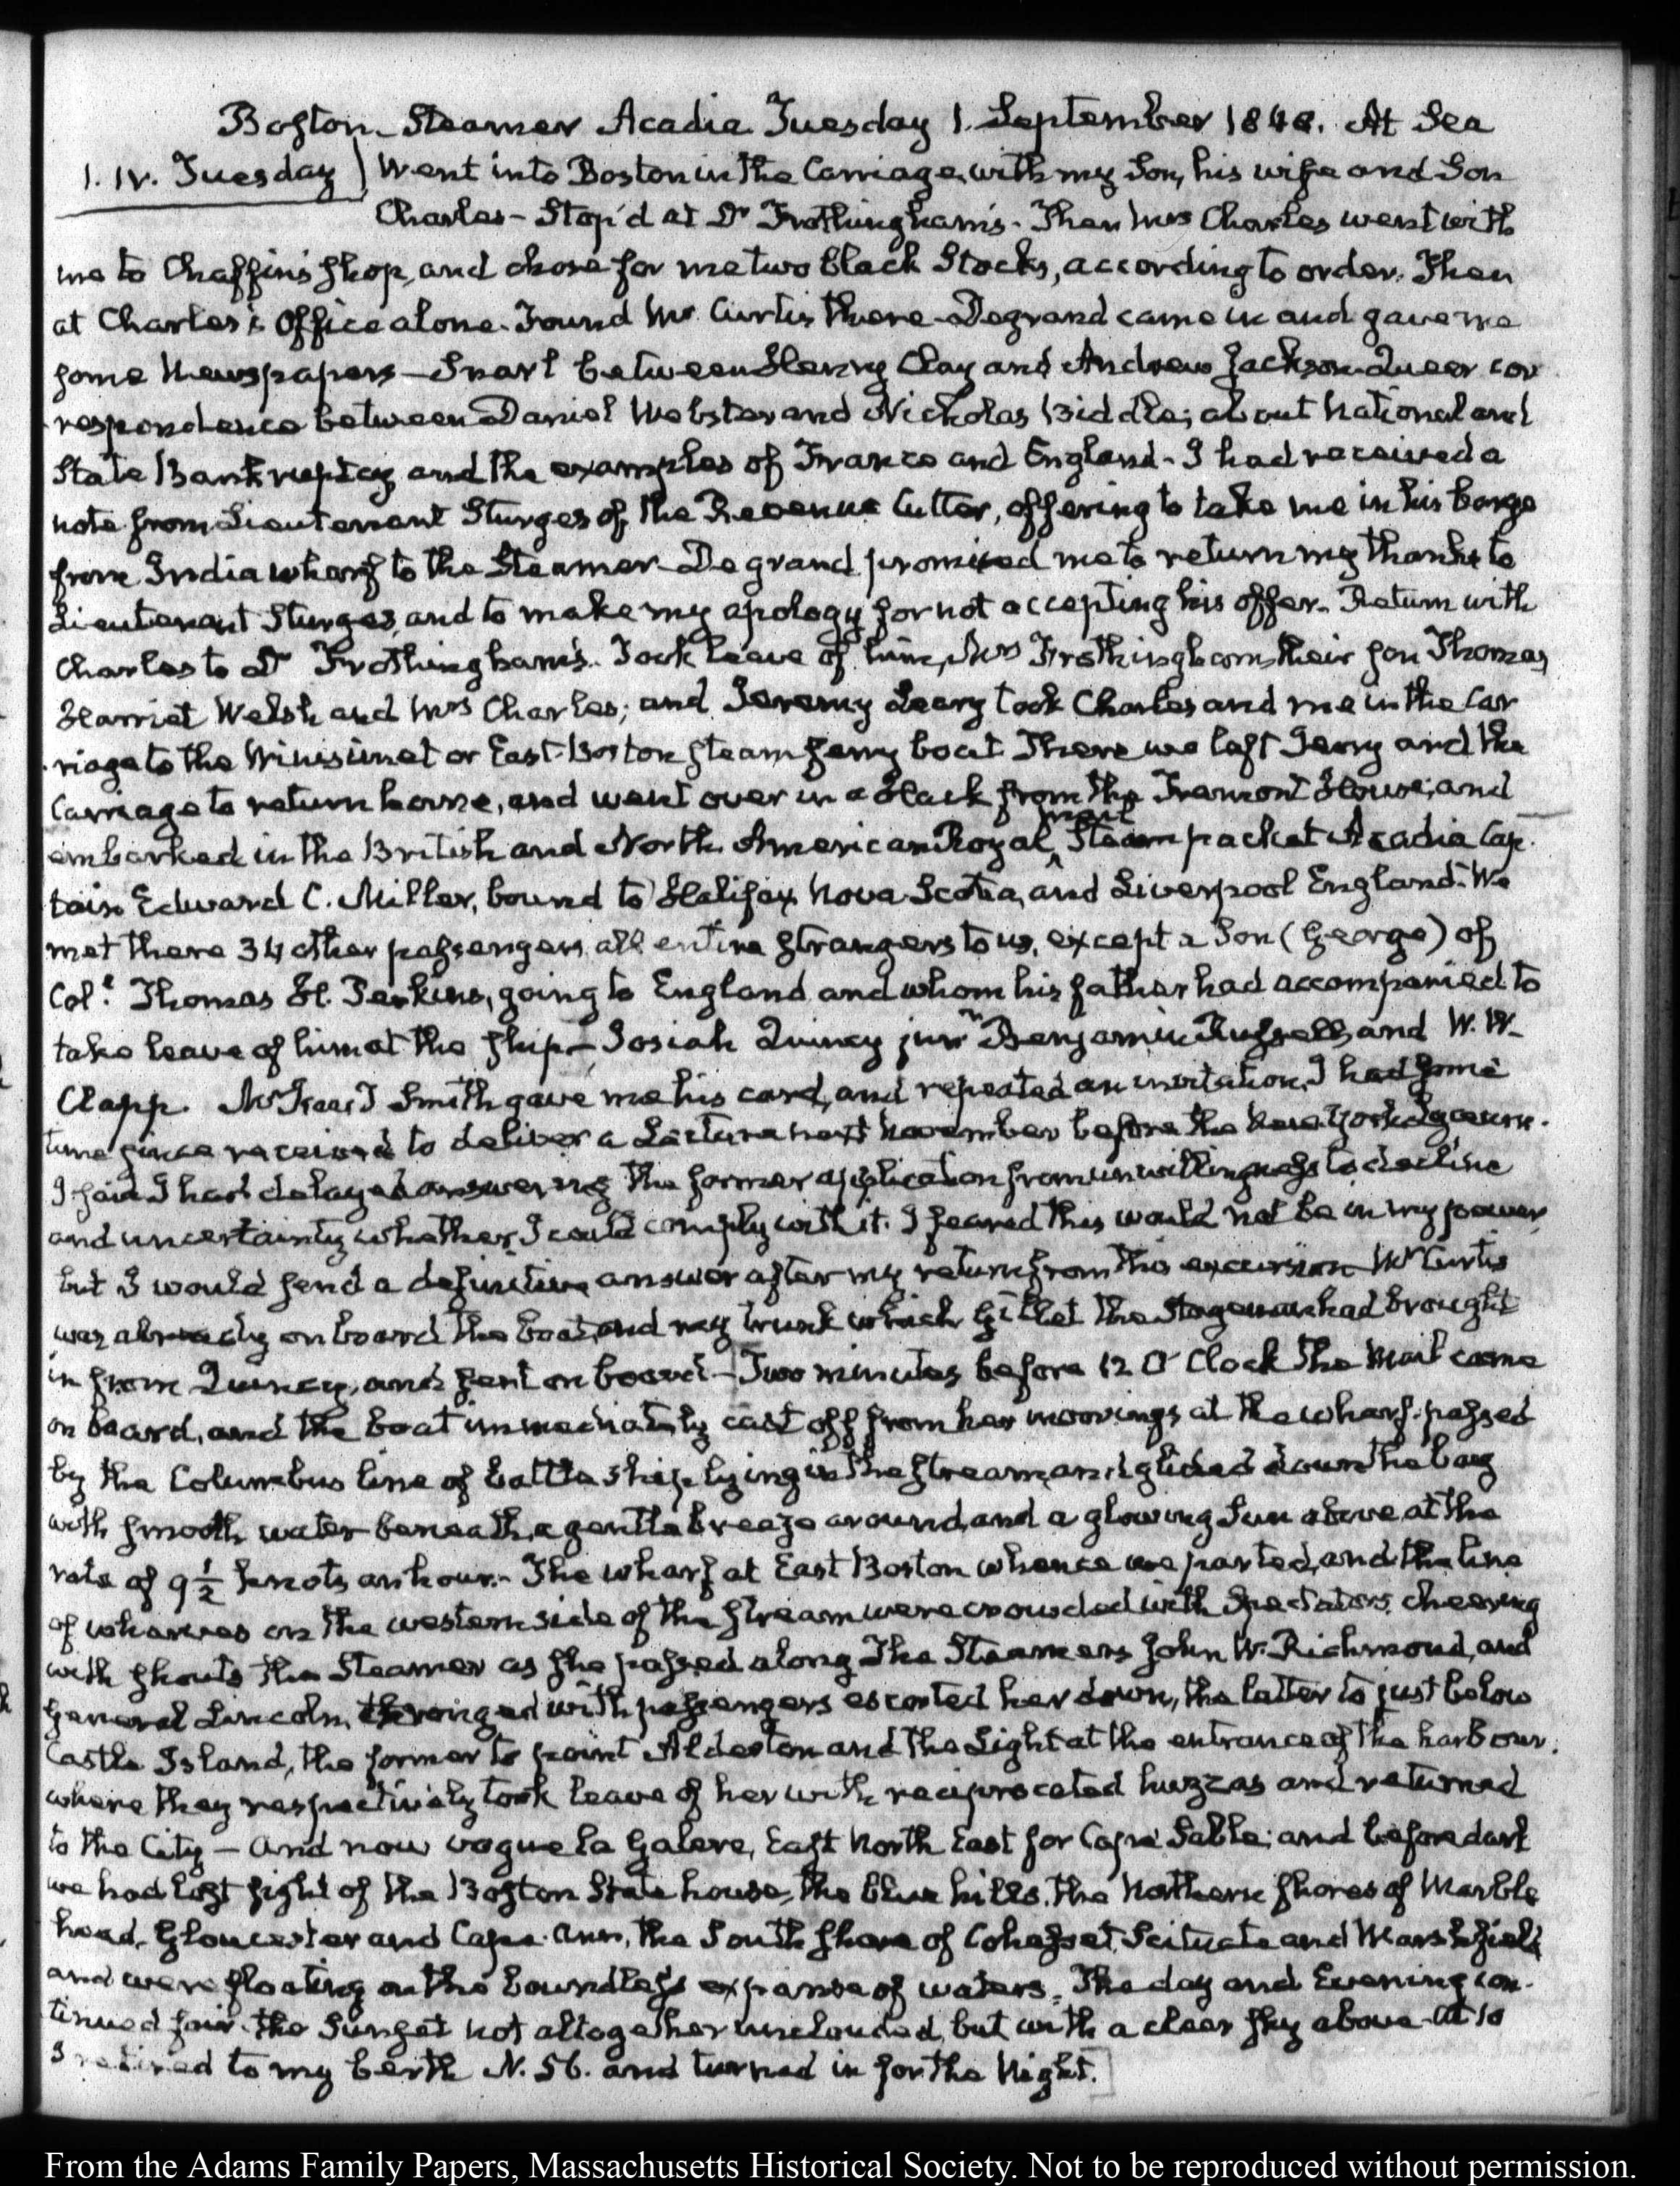 Boston-Steamer Acadia Tuesday 1. September 1840. At Sea
1. IV. Tuesday) Went into Boston in the Carriage, with my Son, his wife and Son
Charles - Stop'd at Dr Frothingham's. Then Mrs Charles went with
me to Chaffin's shop, and chose for me two black Stocks, according to order. Then
at Charles's Office alone. Found Mr. Curtis there - Degrand came in and gave me
some Newspapers - Snarl between Henry Clay and Andrew Jackson. Queer cor
respondence between Daniel Webster and Nicholas Biddle; about National and
State Bankruptcy and the examples of France and England - I had received a
note from Lieutenant Sturges of the Revenue Cutter, offering to take me in his barge
from India wharf to the Steamer - Degrand promised me to return my thanks to
Lieutenant Sturges, and to make my apology for not accepting his offer. Return with
Charles to Dr Frothingham's. Took leave of him, Mrs Frothingham, their son Thomas,
Harriet Welsh and Mrs Charles; and Jeremy Leary took Charles and me in the Car
riage to the Winisimet or East-Boston steam ferry boat. There we left Jerry and the
Carriage to return home, and went over in a Hack from the Tremont House; and
embarked in the British and North American Royal mail Steam packet Acadia Cap-
tain Edward C. Miller, bound to Halifax Nova Scotia, and Liverpool England. We
met there 34 other passengers all entire strangers to us, except a Son (George) of
Col.l Thomas H. Perkins, going to England and whom his father had accompanied to
take leave of him at the ship - Josiah Quincy junr Benjamin Russell, and W. W.
Clapp. Mr Isaac T Smith gave me his card, and repeated an invitation I had some
time since received to deliver a Lecture next November before the New-York Lyceum.
I said I had delayed answering the former application from unwillingness to decline
and uncertainty whether I could comply with it. I feared this would not be in my power
but I would send a definitive answer after my return from this excursion - Mr Curtis
was already on board the boat, and my trunk which Gillet the Stageman had brought
in from Quincy, and sent on board - Two minutes before 12 O' Clock the Mail came
on board, and the boat immediately cast off from her moorings at the wharf. passed
by the Columbus line of battle ship lying in the stream, and glided down the bay
with smooth water beneath, a gentle breeze around, and a glowing Sun above at the
rate of 9 1/2 knots an hour. - The wharf at East Boston whence we parted, and the line
of wharves on the western side of the stream were crowded with Spectators, cheering
with shouts the Steamer as she passed along. The Steamers John W. Richmond, and
General Lincoln, thronged with passengers escorted her down, the latter to just below
Castle Island, the former to point Alderton and the Light at the entrance of the harbour,
where they respectively took leave of her with reciprocated huzzas and returned
to the City - And now vogue la Galere, East North East for Cape Sable; and before dark
we had lost sight of the Boston State house, the blue hills, the Northern shores of Marble
head, Gloucester and Cape Ann, the South shore of Cohasset, Scituate and Marshfield
and were floating on the boundless expanse of waters. The day and Evening con-
tinued fair. the Sunset not altogether unclouded, but with a clear sky above. At 10
I retired to my berth N. 56. and turned in for the Night.]
From the Adams Family Papers, Massachusetts Historical Society. Not to be reproduced without permission.